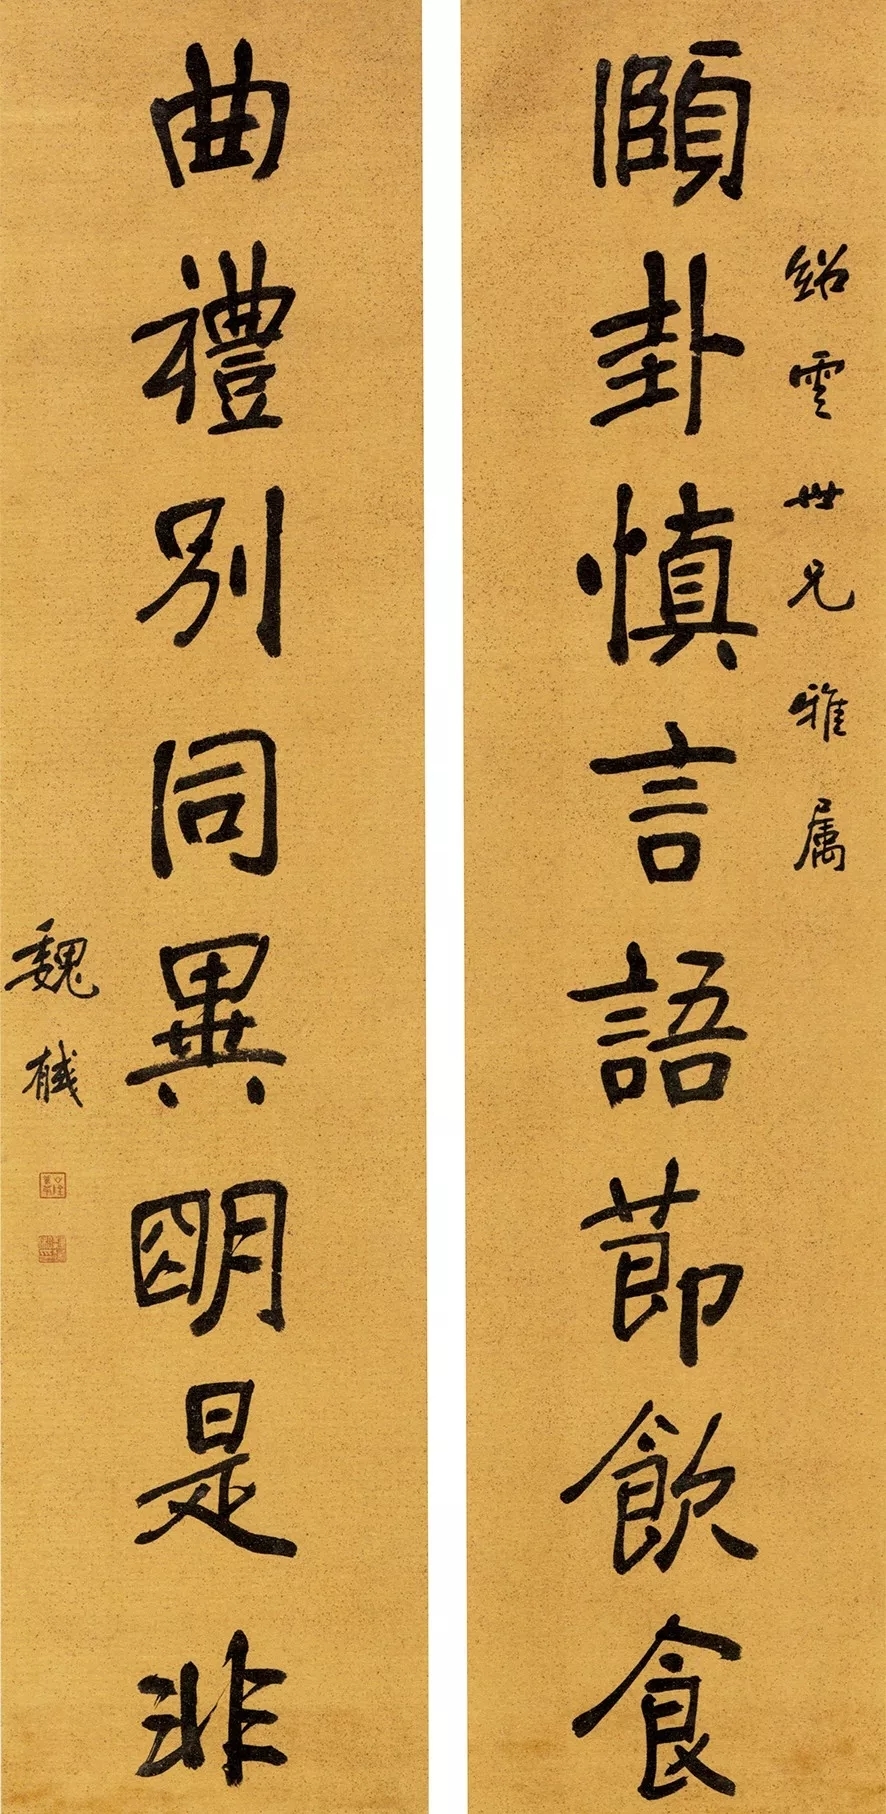 紹雲世兄雅属
頤卦慎言語節飲食
曲禮別同異明是非
魏棫